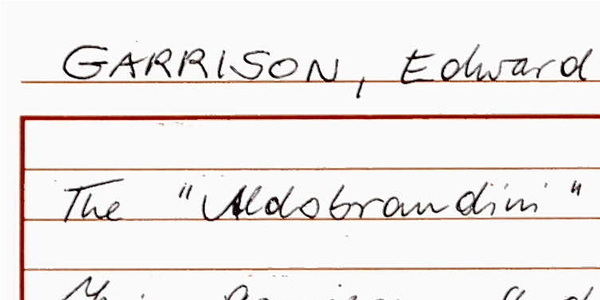 GARRISON, Edward
The "Aldobrandini"